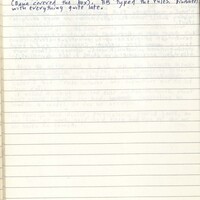 (Dave covered the box). BB typed the rules
with everything quite late.